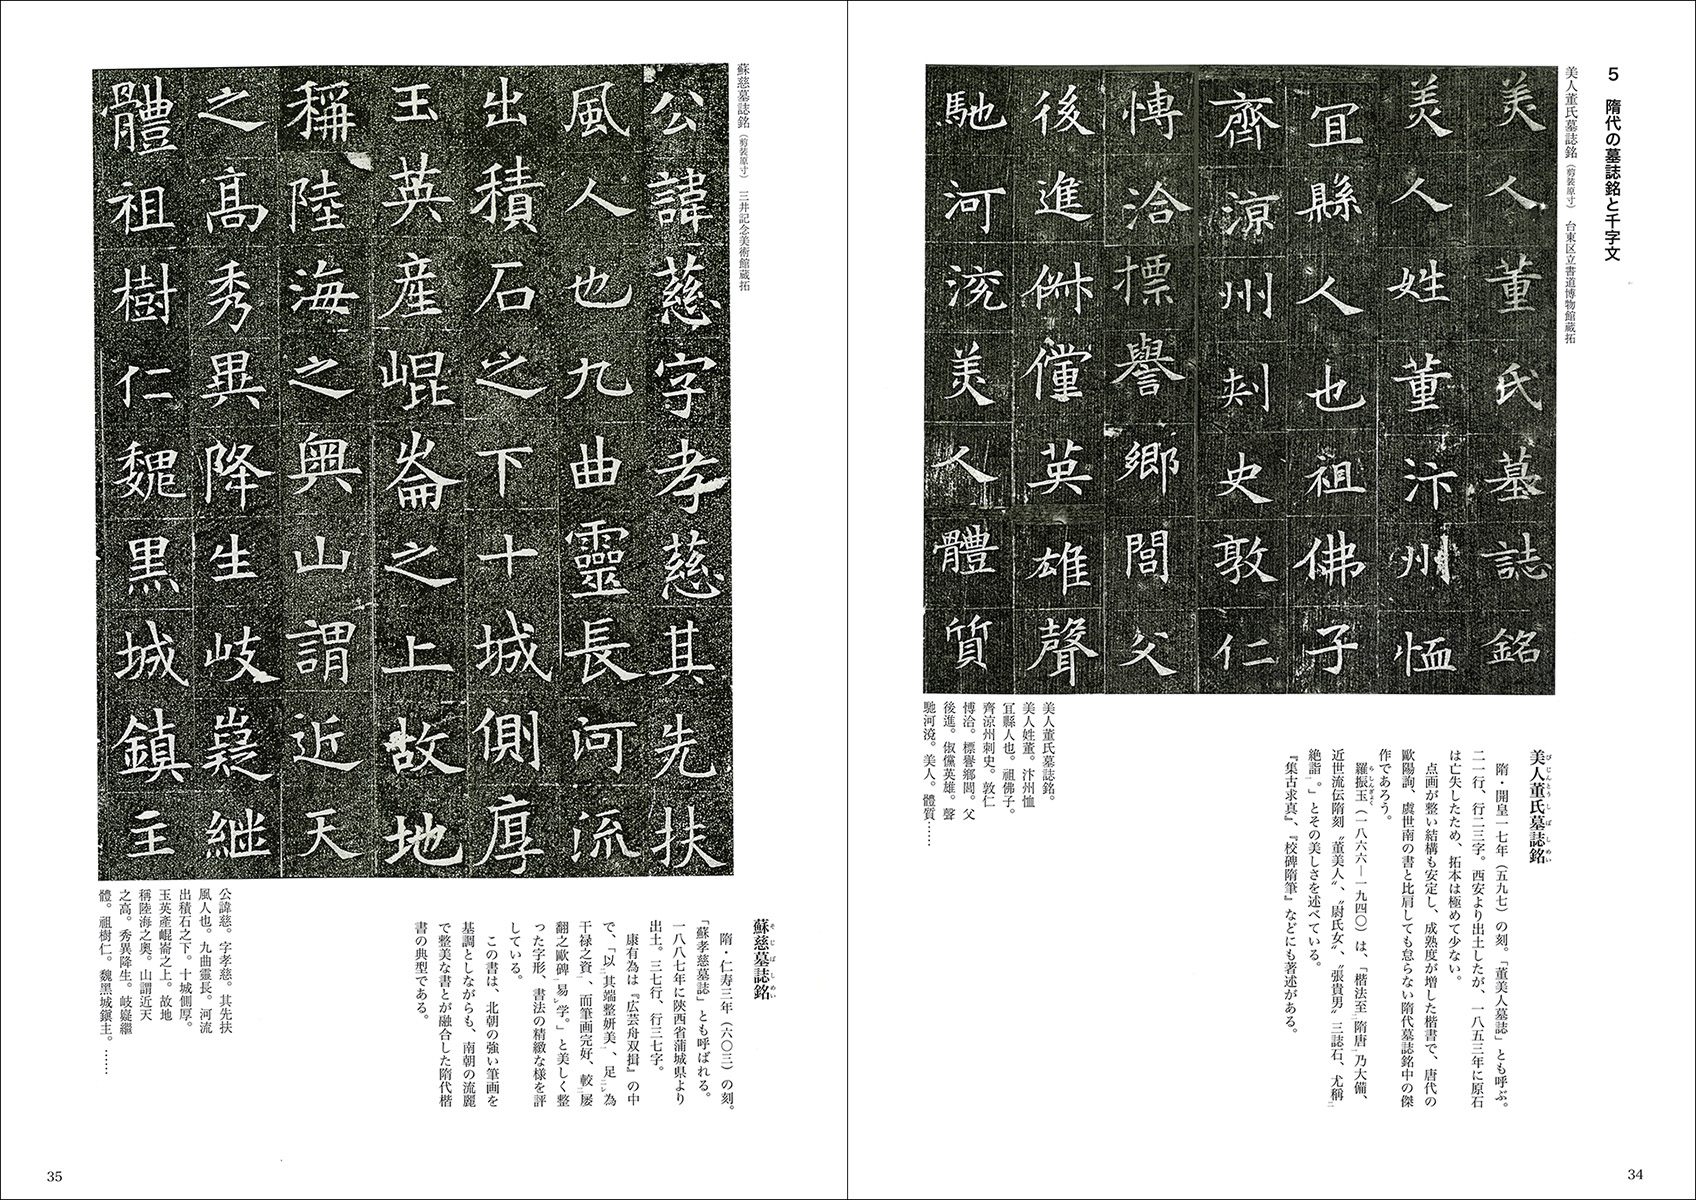 5　隋代の墓誌銘と千字文
美人董氏墓誌銘（剪装原寸）　台東区立書道博物館蔵拓
美人董氏墓誌銘
美人姓董汴州恤
冝縣人也祖佛子
齊涼州刾史敦仁
愽洽摽譽鄉閭父
後進俶儻英雄聲
馳河渷美人體質
美人董氏墓誌銘。
美人姓董。汴州恤
冝縣人也。祖佛子。
齊涼州刺史。敦仁
博洽。標譽鄉閭。父
後進。俶儻英雄。聲
馳河渷。美人。體質……
美人董氏墓誌銘
びじんとうしぼしめい
隋・開皇一七年（五九七）の刻。「董美人墓誌」とも呼ぶ。
二一行、行二三字。西安より出土したが、一八五三年に原石
は亡失したため、拓本は極めて少ない。
点画が整い結構も安定し、成熟度が増した楷書で、唐代の
歐陽詢、虞世南の書と比肩しても怠らない隋代墓誌銘中の傑
作であろう。
羅振玉（一八六六―一九四〇）は、「楷法至二隋唐一乃大備、
らしんぎょく
近世流伝隋刻〝董美人〟、〝尉氏女〟、〝張貴男〟三誌石、尤稱二
絶詣一。」とその美しさを述べている。
『集古求真』、『校碑隋筆』などにも著述がある。
34
蘇慈墓誌銘（剪装原寸）　三井記念美術館蔵拓
公諱慈字孝慈其先扶
風人也九曲靈長河流
出積石之下十城側厚
玉英産崐崙之上故地
稱陸海之奥山謂近天
之高秀異降生岐嶷継
體祖樹仁魏黒城鎮主
公諱慈。字孝慈。其先扶
風人也。九曲靈長。河流
出積石之下。十城側厚。
玉英産崐崙之上。故地
稱陸海之奥。山謂近天
之高。秀異降生。岐嶷繼
體。祖樹仁。魏黑城鎭主。……
蘇慈墓誌銘
そじぼしめい
隋・仁寿三年（六〇三）の刻。
「蘇孝慈墓誌」とも呼ばれる。
一八八七年に陝西省蒲城県より
出土。三七行、行三七字。
康有為は『広芸舟双揖』の中
で、「以二其端整妍美一、足レ為二
干禄之資一、而筆画完好、較二屡
翻之歐碑一易レ学。」と美しく整
った字形、書法の精緻な様を評
している。
この書は、北朝の強い筆画を
基調としながらも、南朝の流麗
で整美な書とが融合した隋代楷
書の典型である。
35